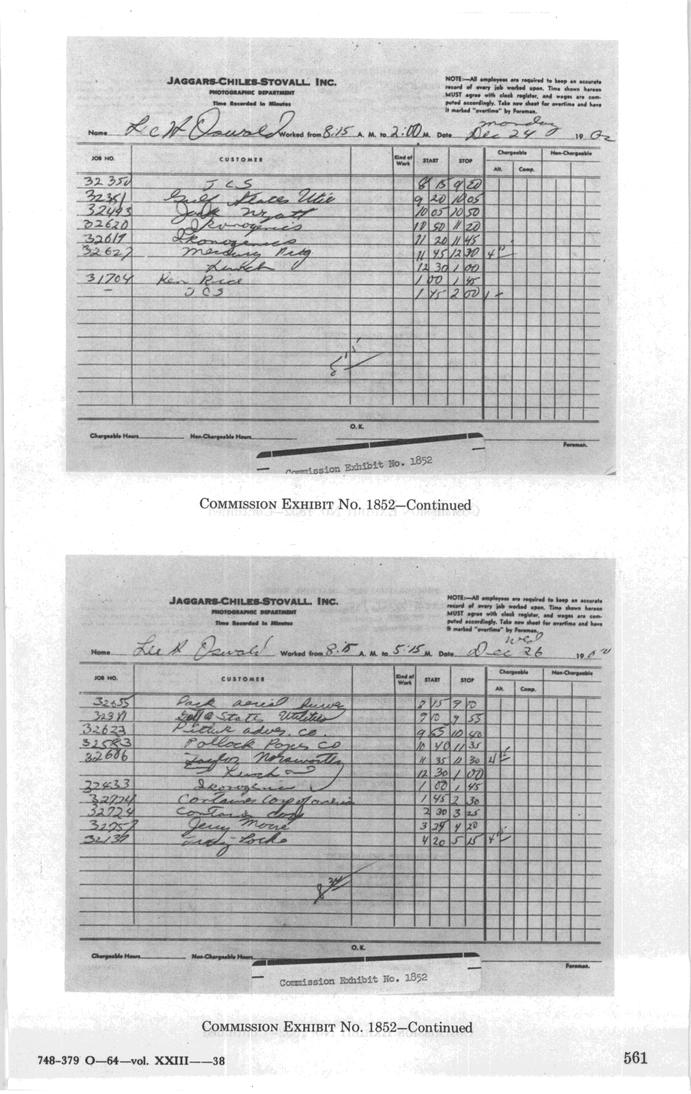 JAGGARS-CHILES-STOVALL, INC.
PHOTOGRAPHIC DEPARTMENT
Time Recorded in Minutes
NOTE:—All employees are required to keep an accurate
record of every job worked upon. Time shown hereon
MUST agree with clock register, and wages are com-
puted accordingly. Take new sheet for overtime and have
it marked "overtime" by Foreman.
monday
Name Lee H Oswald Worked from 8:15 A. M. to 2:00 M. Date Dec 24 1962
JOB NO. CUSTOMER Kind of Work START STOP Chargeable Non-Chargeable
Alt. Comp.
32350 JCS 8 15 9 20
32351 Gulf States Utie 9 20 10 05
32493 Jack Wyatt 10 05 10 50
32620 Ikonogenics 10 50 11 20
32617 Ikonogenics 11 20 11 45
32627 Mercury Ptg 11 45 12 30
Lunch 12 30 1 00
31704 Ken Rice 1 00 1 45
— JCS 1 45 2 00
O.K.
Chargeable Hours Non-Chargeable Hours Foreman.
Commission Exhibit No. 1852
COMMISSION EXHIBIT No. 1852—Continued
JAGGARS-CHILES-STOVALL, INC.
PHOTOGRAPHIC DEPARTMENT
Time Recorded in Minutes
NOTE:—All employees are required to keep an accurate
record of every job worked upon. Time shown hereon
MUST agree with clock register, and wages are com-
puted accordingly. Take new sheet for overtime and have
it marked "overtime" by Foreman.
Wed
Name Lee H Oswald Worked from 8:15 A. M. to 5:15 M. Date Dec 26 19
JOB NO. CUSTOMER Kind of Work START STOP Chargeable Non-Chargeable
Alt. Comp.
32655 Park aerial 8 15 9 10
State Utilities 9 10 9 55
32623 adver. co. 9 55 10 40
32583 Pollock Paper co 10 40 11 35
32606 Taylor Norsworthy 11 35 12 30
Lunch 12 30 1 00
Ikonogenics 1 00 1 45
32724 Container Corp of america 1 45 2 30
32724 Container 2 30 3 25
Jerry Moore 3 25 4 20
Locke 4 20 5 15
O.K.
Chargeable Hours Non-Chargeable Hours Foreman.
Commission Exhibit No. 1852
COMMISSION EXHIBIT No. 1852—Continued
748-379 O—64—vol. XXIII——38 561